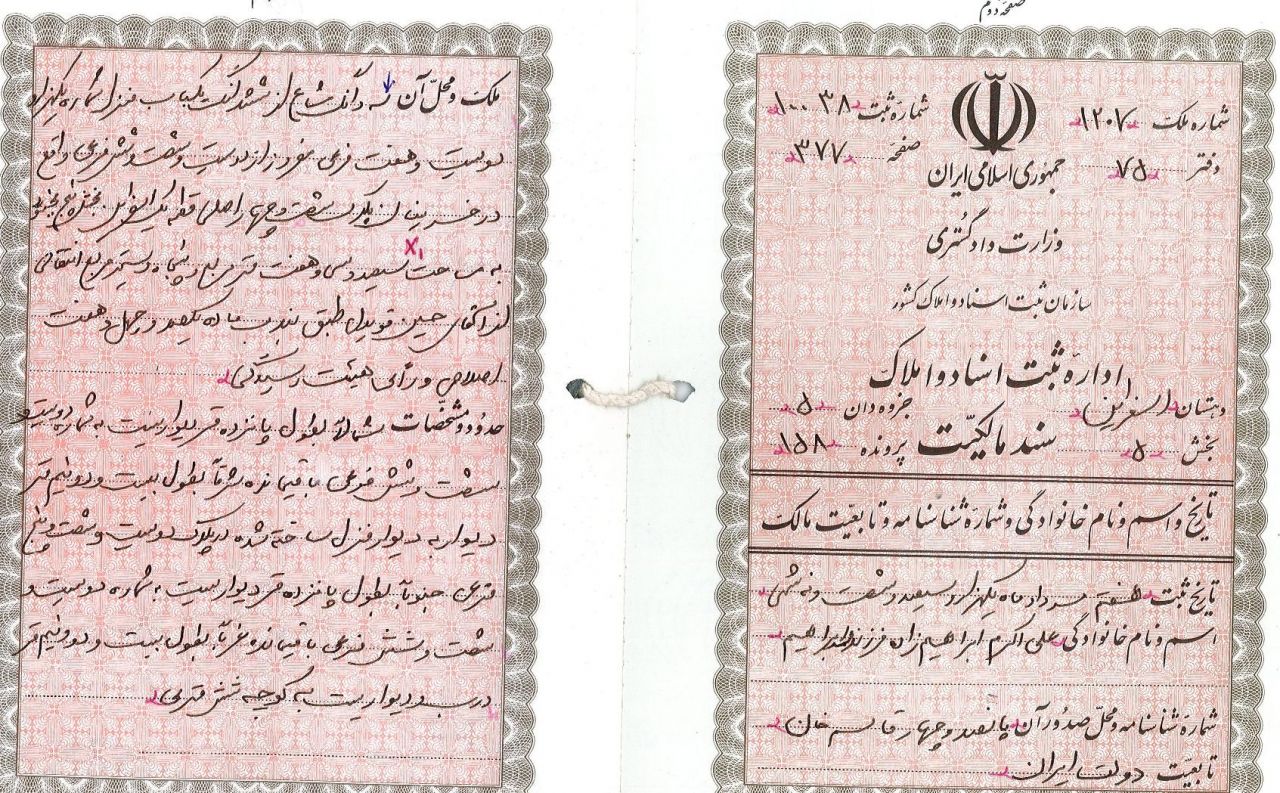 صفحهٔ دوم
شماره ملک ۱۲۰۷
شمارهٔ ثبت ۱۰۰۳۸
دفتر ۷۵
صفحه ۳۷۷
جمهوری اسلامی ایران
وزارت دادگستری
سازمان ثبت اسناد و املاک کشور
ادارهٔ ثبت اسناد و املاک
دهستان اسفراین جزوه‌دان ۵
بخش ۵ سند مالکیت پرونده ۱۵۸
تاریخ و اسم و نام خانوادگی و شمارهٔ شناسنامه و تابعیت مالک
تاریخ ثبت هفتم مرداد ماه یکهزار و سیصد و شصت و نه شمسی
اسم و نام خانوادگی علی اکرم ابراهیم زاده فرزند ابراهیم
شمارهٔ شناسنامه و محل صدور آن پانصد و چهار قاسم خان
تابعیت دولت ایران
ملک و محل آن سه دانگ مشاع از ششدانگ یکباب منزل شماره یکهزار و
دویست و هفت فرعی مفروز از دویست و شصت و شش فرعی واقع
در از پلاک شصت و چهار اصلی قطعه یک اسفراین بخش پنج بجنورد
به مساحت سیصد و سی و هفت متر مربع و پنجاه دسیمتر مربع انتقالی
از آقای حسین طبق بند ب ماده یکصد و چهل و هفت
اصلاحی و رأی هیئت رسیدگی
حدود و مشخصات شمالاً بطول پانزده متر دیواریست به شماره دویست و
شصت و شش فرعی باقیمانده شرقاً بطول بیست و دو و نیم متر
دیوار به دیوار منزل ساخته شده در پلاک دویست و شصت و پنج
فرعی جنوباً بطول پانزده متر دیواریست به شماره دویست و
شصت و شش فرعی باقیمانده غرباً بطول بیست و دو و نیم متر
درب و دیواریست به کوچه شش متری